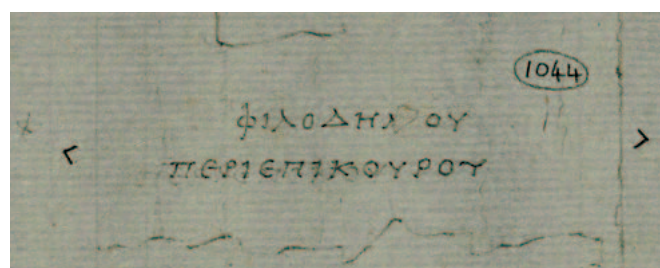 1044
ΦΙΛΟΔΗΜΟΥ
ΠΕΡΙΕΠΙΚΟΥΡΟΥ